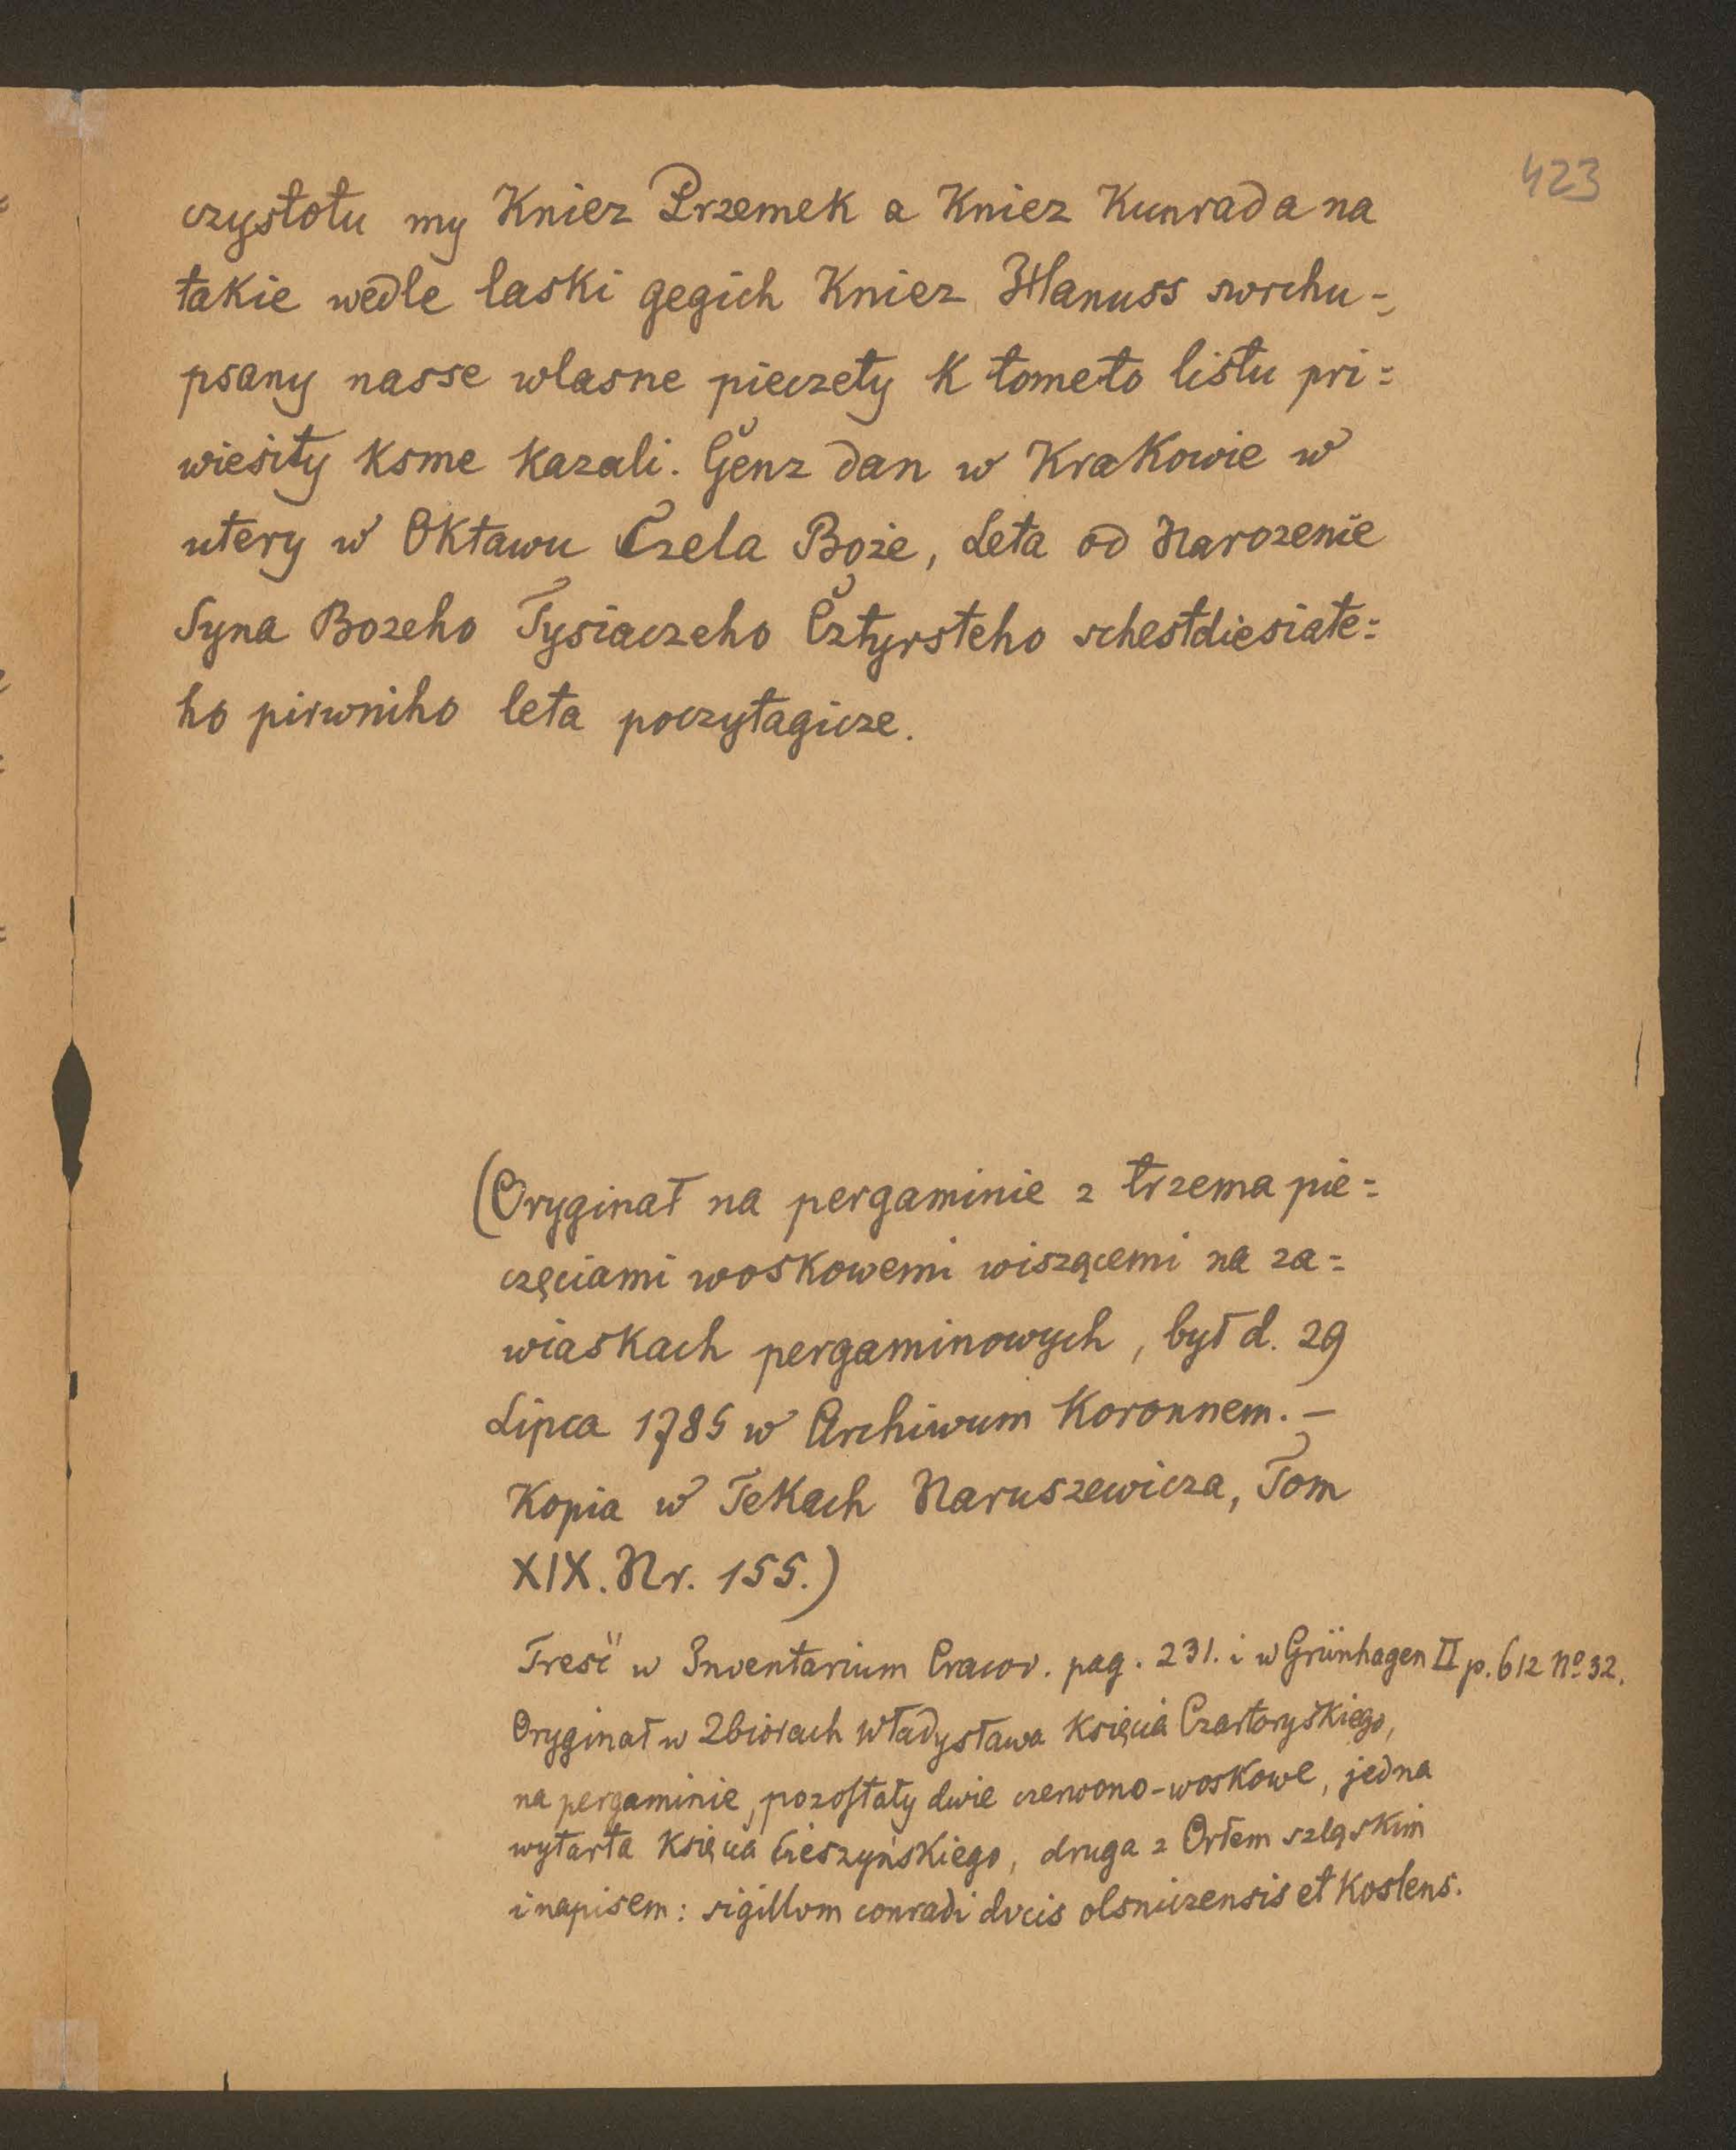 423
czystotu my Kniez Przemek a Kniez Kunrad a na
takie wedle laski gegich Kniez Hanuss swrchu=
psany nasse wlasne pieczety K tometo listu pri=
wiesity ksme kazali. Genz dan w Krakowie w
utery w Oktawu Czela Boże, Leta od Narozenie
Syna Bozeho Tysiaczeho Cztyrsteho schestdiesiate=
ho pirwniho leta poczytagicze.
(Oryginał na pergaminie z trzema pie=
częciami woskowemi wiszącemi na za=
wiaskach pergaminowych, był d. 29
Lipca 1785 w Archiwum Koronnem. –
Kopia w Tekach Naruszewicza, Tom
XIX. Nr. 155.)
Treść w Inventarium Cracov. pag. 231. i w Grünhagen II p. 612 No 32.
Oryginał w Zbiorach Władysława Księcia Czartoryskiego,
na pergaminie, pozostały dwie czerwono-woskowe, jedna
wytarta Księcia Cieszyńskiego, druga z Orłem szląskim
i napisem: sigillvm conradi dvcis olsniczensis et Koslens.